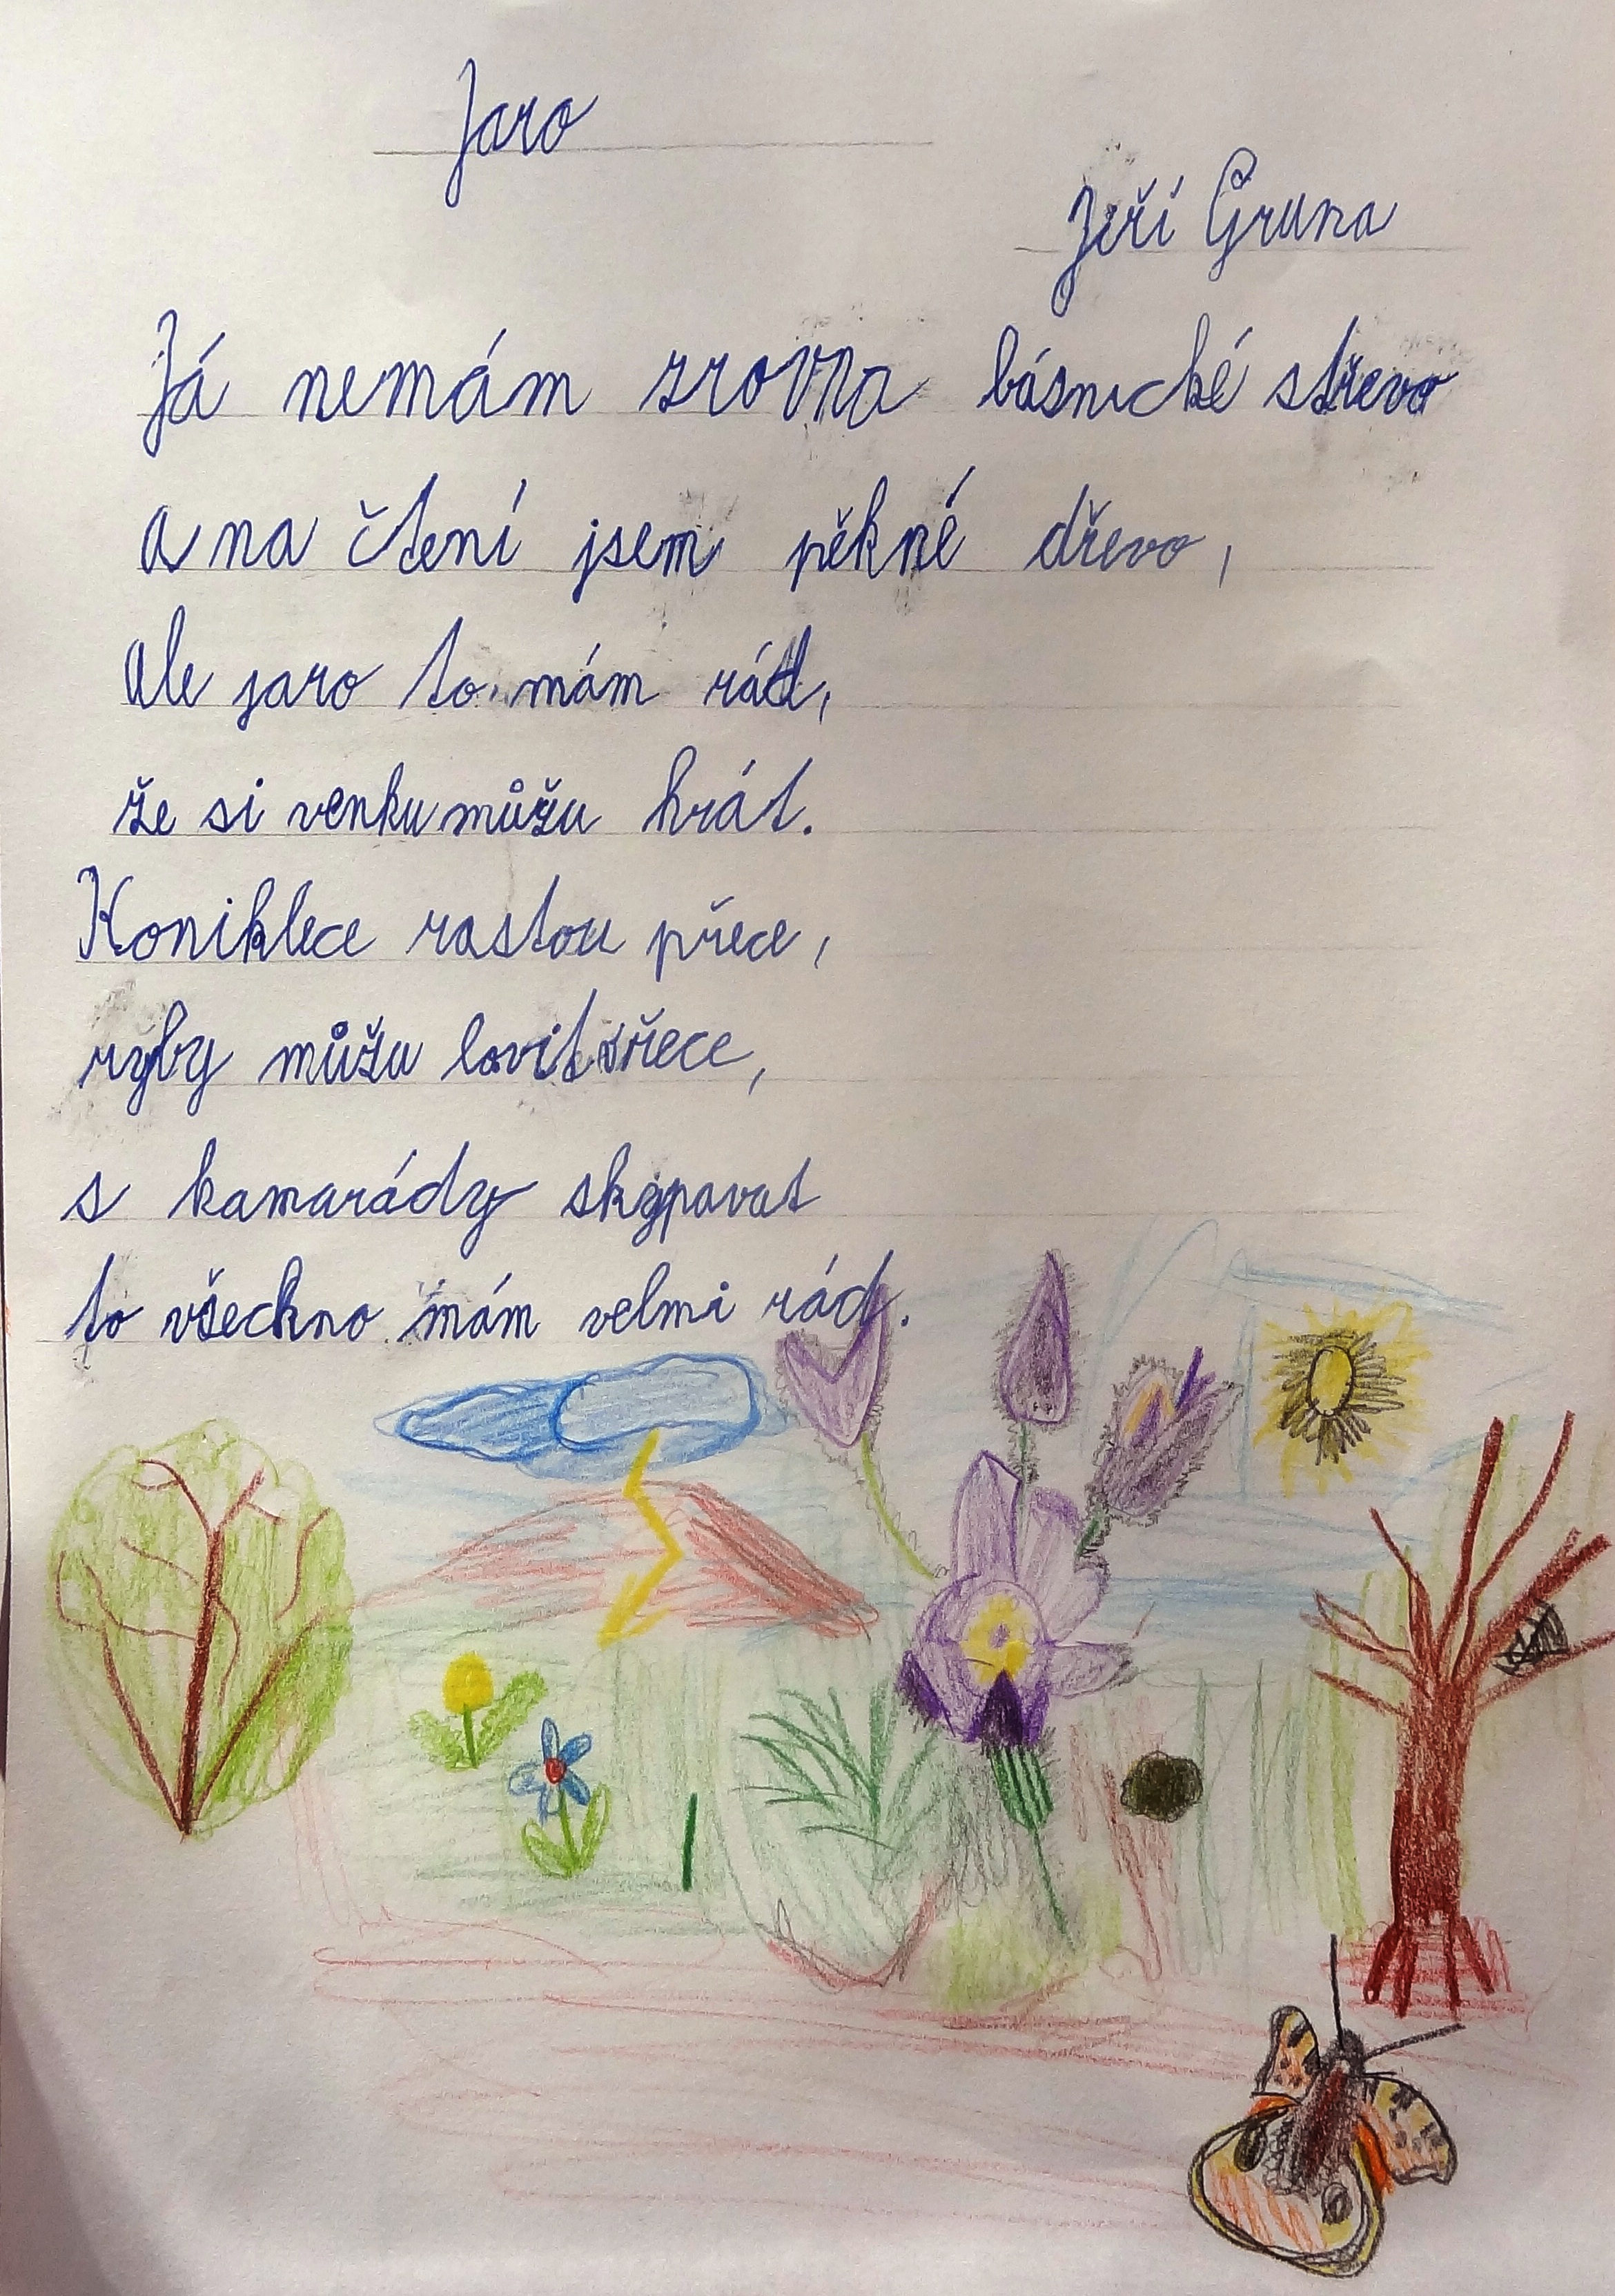 Jaro
Jiří Gruna
Já nemám zrovna básnické střevo
a na čtení jsem pěkné dřevo,
ale jaro to mám rád,
že si venku můžu hrát.
Koniklece rostou přece,
ryby můžu lovit v řece,
s kamarády skypovat
to všeckno mám velmi rád.